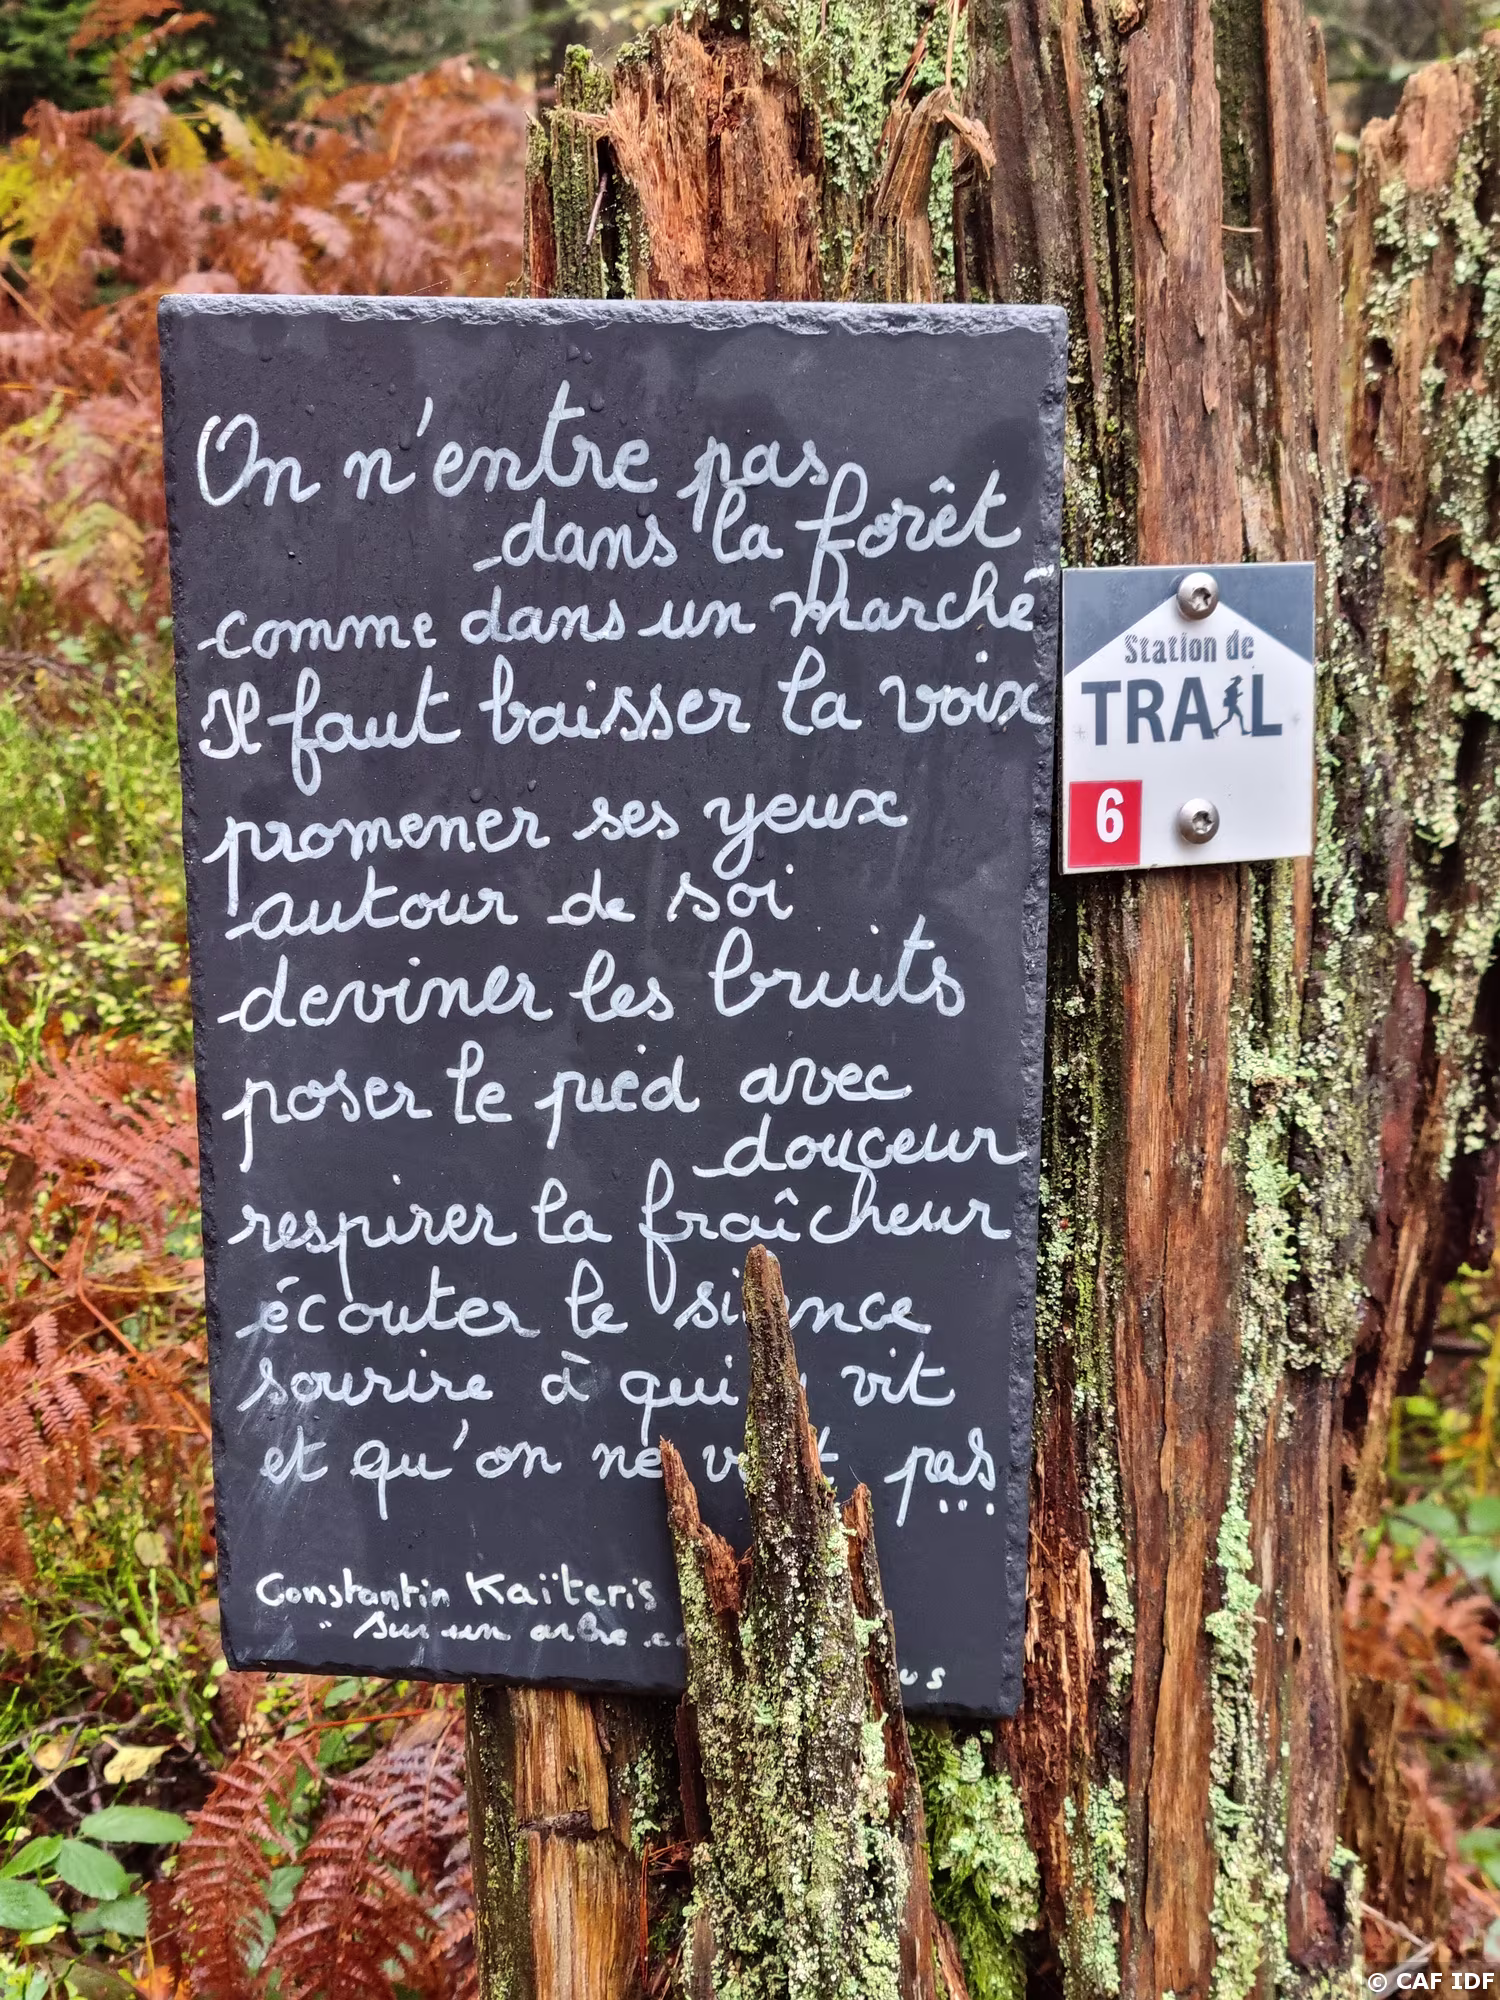 On n'entre pas
dans la forêt
comme dans un marché
Il faut baisser la voix
promener ses yeux
autour de soi
deviner les bruits
poser le pied avec
douceur
respirer la fraîcheur
écouter le silence
sourire à qui y vit
et qu'on ne voit pas
...
Constantin Kaïteris
"Sur un arbre
Station de
TRAIL
6
© CAF IDF